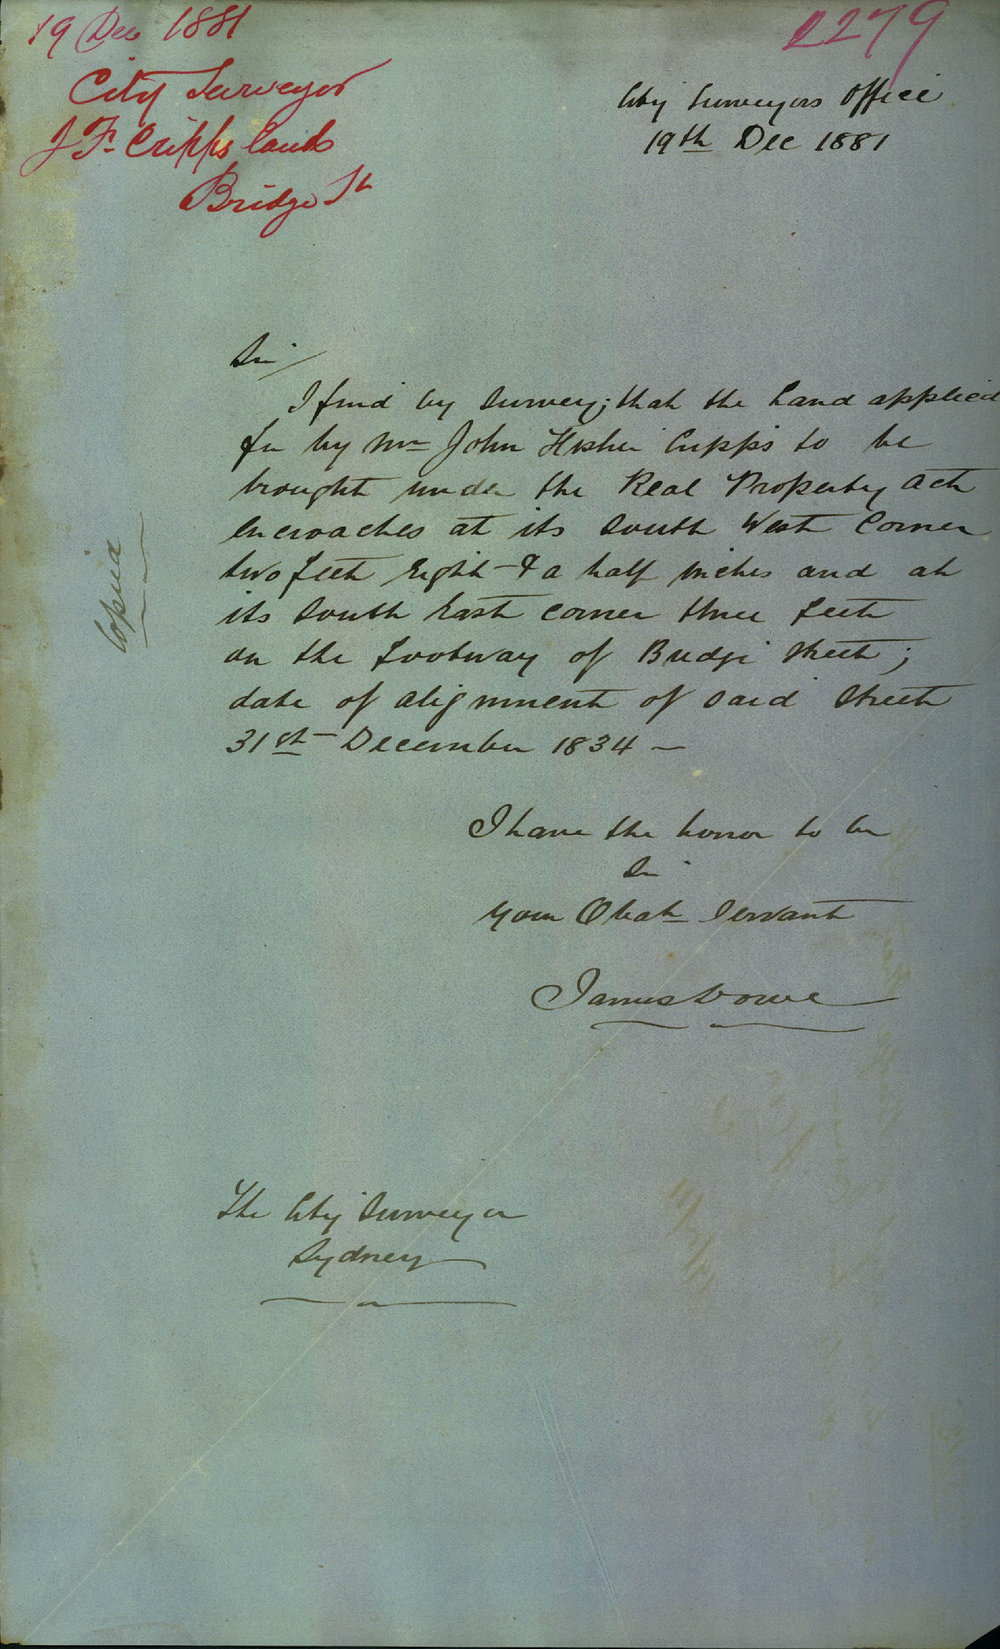 19 Dec 1881
City Surveyor
J F. Cripps land
Bridge St
2279
City Surveyors Office
19th Dec 1881
Sir
I find by survey; that the Land applied
for by Mr John Fisher Cripps to be
brought under the Real Property Act
encroaches at its South West Corner
two feet Eight & a half inches and at
its South East corner three feet
on the footway of Bridge Street;
date of alignment of said Street
31st December 1834 —
Copied
I have the honor to be
Sir
Your Obdt Servant
James Vowe
The City Surveyor
Sydney